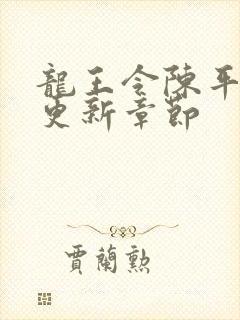 龍王令陳平
更新章節
賈蘭勲